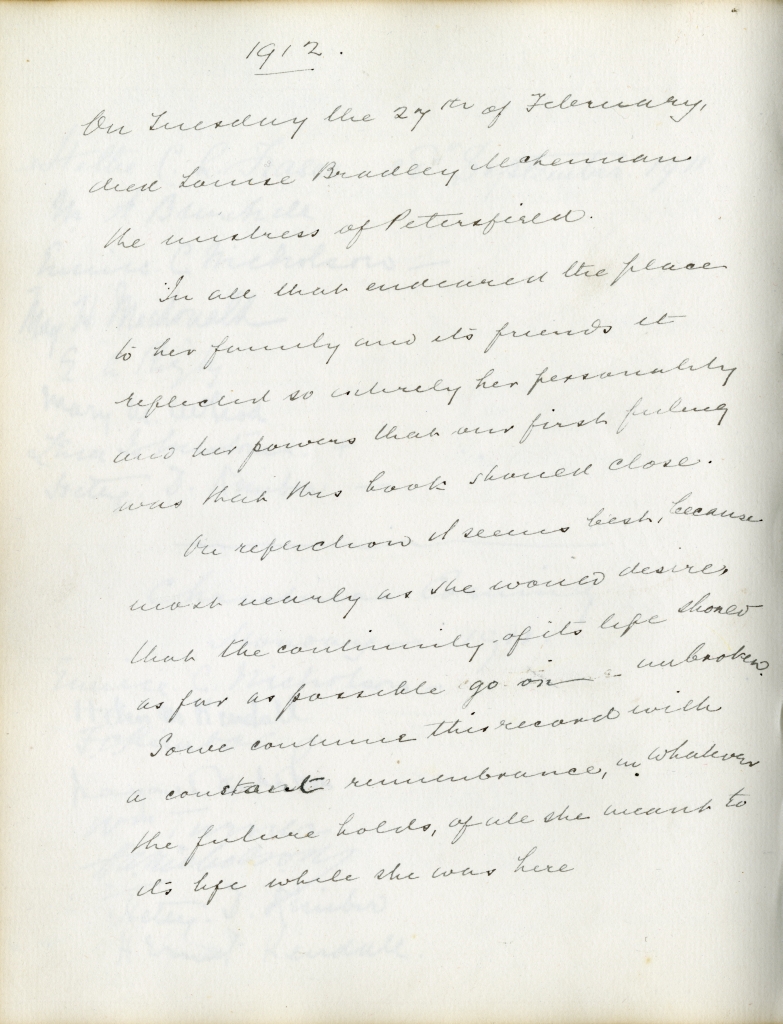 1912.
On Tuesday the 27th of February,
died Louise Bradley McKennan
the mistress of Petersfield.
In all that endeared the place
to her family and its friends it
reflected so entirely her personality
and her powers that our first feeling
was that this book should close.
On reflection it seems best, because
most nearly as she would desire,
that the continuity of its life should
as far as possible go on – unbroken.
So we continue this record with
a constant remembrance, in whatever
the future holds, of all she meant to
its life while she was here